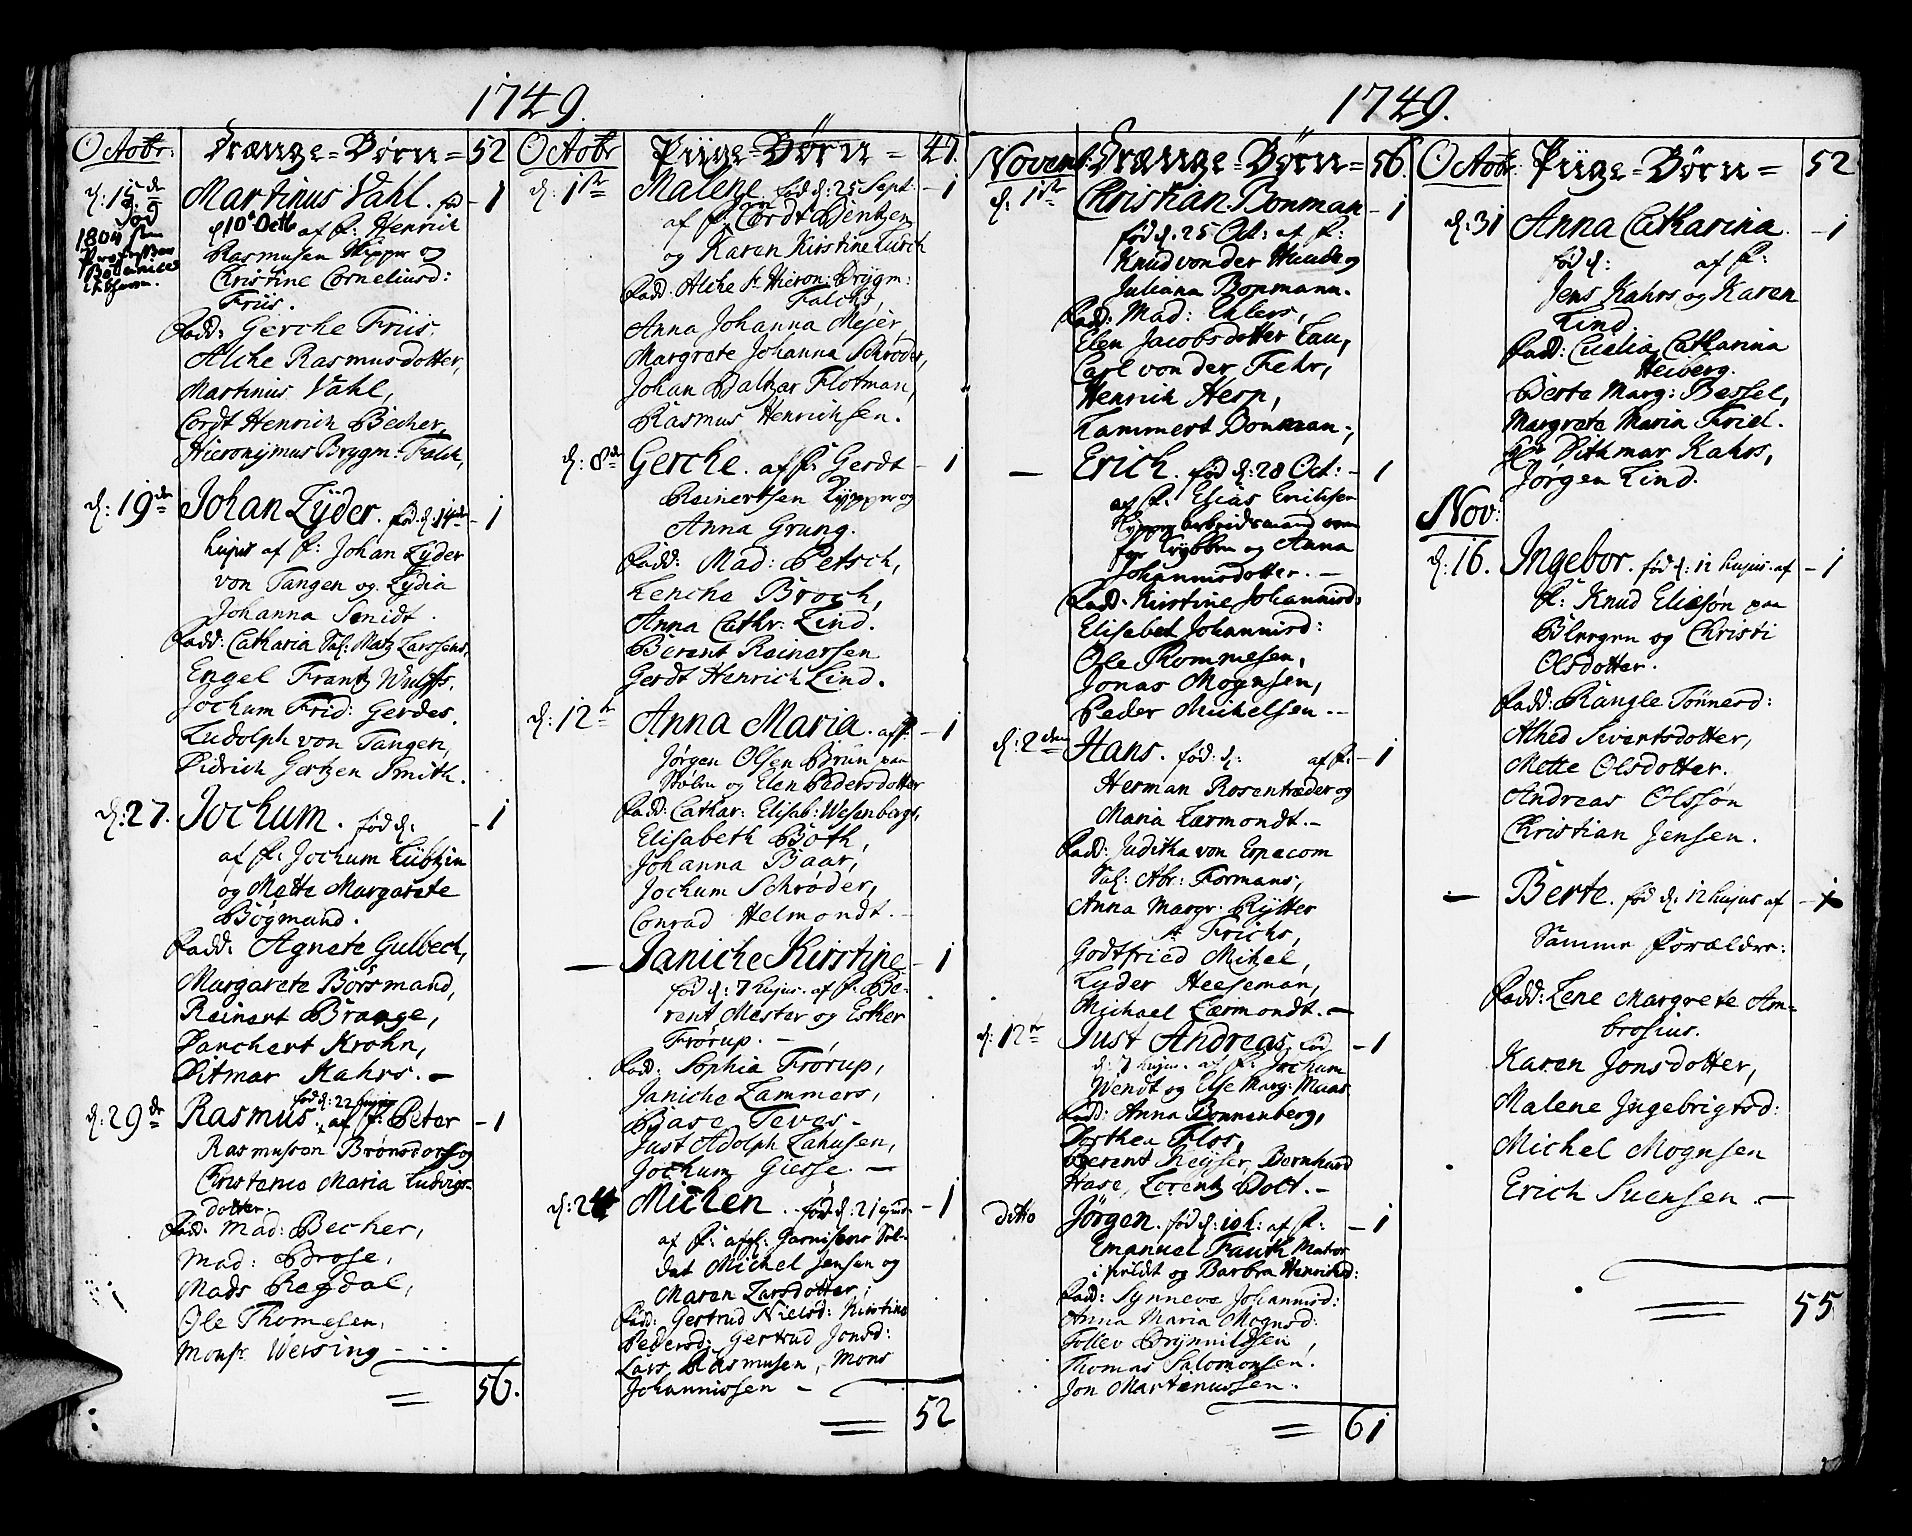 1749.
Octobr:
Drænge-Børn= 52
d: 15 de
død
1804 som
Professor
Botanices
Martinus Vahl. fød -1
d 10 Octb af f: Henrich
Rasmusen Skipper og
Christine Corneliusd:
Friis.
Fadd: Gerche Friis
Alche Rasmusdotter,
Martinus Vahl,
Cordt Henrich Becher,
Hieronijmus Brygm: Falch,
d: 19 de Johan Lyder. fød. d: 14 de -1
hujus af f: Johan Lyder
von Tangen og Lydia
Johanna Smidt.
Fadd: Catharia Sal: Matz Larssens,
Engel Frantz Wulffs.
Jochum Frid: Gerdes.
Ludolph von Tangen,
Didrich Gertzen Smith.
d: 27. Jochum. fød d: -1
af f: Jochum Lübtzin
og Mette Margarete
Bøgmand.
Fadd: Agnete Gulbech,
Margarete Børsmand,
Reinert Brange,
Danchert Krohn,
Ditmar Kahrs.-
d: 29 de Rasmus. fød d: 22 hujus af f: Peter -1
Rasmuson Brønsdorf og
Christense Maria Ludvigs-
dotter.
Fadd: Mad: Becher,
Mad: Brose,
Mads Regdal,
Ole Thomesen,
Monsr Wersing -
= 56.
Octobr
Piige-Børn = 47.
d: 1ste Malene fød d: 25 Sept: -1
af f: Cordt Bentzen
og Karen Kirstine Lusch
Fadd: Alche Sr Hieron: Brygm:
Falchs,
Anna Johanna Mejer,
Margrete Johanna Schrøder,
Johan Baltzar Flotman,
Rasmus Henrichsen.
d: 8de Gerche. af f: Gerdt -1
Reinertsen Lypper og
Anna Grung.
Fadd: Mad: Petsch,
Lencha Broch,
Anna Cathr: Lind.
Berent Reinersen
Gerdt Henrich Lind.
d: 12te Anna Maria. af f: -1
Jørgen Olsen Brun paa
Stølen og Elen Pedersdotter
Fadd: Cathar: Elisab: Wesenbergs,
Elisabeth Both,
Johanna Baar,
Jochum Schrøder,
Conrad Helmondt.-
- Janiche Kirstine -1
fød d: 7 hujus. af f: Be-
rent Mester og Esker
Frørup.-
Fadd: Sophia Frørup,
Janiche Lammers,
Base Teves-
Just Adolph Lahusen,
Jochum Giesse. -
d: 24 Michen. fød d: 21 ejusd -1
af f: afgl: Garnisons Sol-
dat Michel Jensen og
Maren Larsdotter,
Fadd: Gertrud Nielsd: Kirstine
Pedersd: Gertrud Jonsd:
Lars Rasmusen, Mons
Johannissen -
= 52
1749.
Novemb:
Drænge-Børn= 56.
d: 1ste Christian Bonman -1
fød d: 25 Oct: af f:
Knud von der Hude og
Juliana Bonmann.
Fadd: Mad: Ehlers,
Elen Jacobsdotter Lau,
Carl von der Fehr,
Henrich Herp,
Lammert Bonman-,
- Erich. fød d: 28 Oct: -1
af f: Elias Erichsen
arbeidsmand
og Anna
Johannisdotter.-
Fadd: Kirstine Johannisd:
Elisabet Johannisd:
Ole Thommesen,
Jonas Mognsen,
Peder Michelsen--
d: 2den Hans. fød d: af f: -1
Herman Rosentræder og
Maria Lærmondt.-
Fadd: Juditha von Especom
Sal: Abr: Formans,
Anna Margr: Rytter
Sr Frichs,
Godtfried Michel,
Lyder Heeseman,
Michael Lærmondt.-
d: 12te Just Andreas. fød -1
d: 7 hujus. af f: Jochum
Wendt og Else Marg: Maas.
Fadd: Anna Bonnenberg,
Dorthea Flos,
Berent Keyser, Bernhard
Hase, Lorentz Bolt.-
ditto Jørgen. fød d: 10 h: af f: -1
Emanuel Fauth Matros
og Barbra Henrichsd:
Fadd: Synneve Johannisd:
Anna Maria Mognsd:
Tollev Brynnildsen,
Thomas Salomonsen.
Jon Martinussen.
= 61
Octobr
Piige-Børn= 52
d: 31 Anna Catharina. -1
fød d: af f:
Jens Kahrs og Karen
Lind.
Fadd: Cicilia Catharina
Heiberg.
Berte Marg: Bessel,
Margrete Maria Friel.
Dithmar Kahrs,
Jørgen Lind.
Nov:
d: 16. Ingebor. fød d: 12 hujus. af -1
f: Knud Eliasøn paa
Blregen og Christi
Olsdotter.
Fadd: Rangle Tønnesd:
Alhed Sivertsdotter,
Mette Olsdotter.
Andreas Olssøn
Christian Jensen.
- Berte. fød d: 12 hujus af -1
Samme Forældre:
Fadd: Lene Margrete Am-
brosius.
Karen Jonsdotter,
Malene Ingebrigtsd:
Michel Mognsen
Erich Suensen.-
= 55